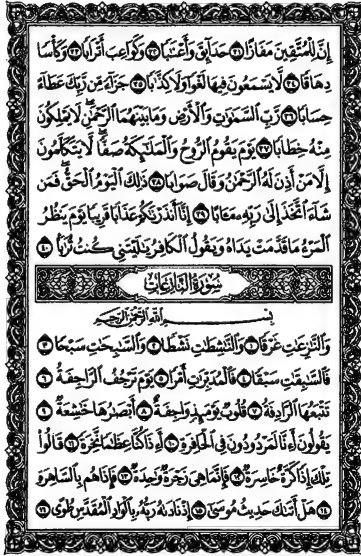 إِنَّ لِلْمُتَّقِينَ مَفَازًا ٣١ حَدَآئِقَ وَأَعْنَٰبًا ٣٢ وَكَوَاعِبَ أَتْرَابًا ٣٣ وَكَأْسًا
دِهَاقًا ٣٤ لَّا يَسْمَعُونَ فِيهَا لَغْوًا وَلَا كِذَّٰبًا ٣٥ جَزَآءً مِّن رَّبِّكَ عَطَآءً
حِسَابًا ٣٦ رَّبِّ السَّمَٰوَٰتِ وَالْأَرْضِ وَمَا بَيْنَهُمَا الرَّحْمَٰنِ ۖ لَا يَمْلِكُونَ
مِنْهُ خِطَابًا ٣٧ يَوْمَ يَقُومُ الرُّوحُ وَالْمَلَٰٓئِكَةُ صَفًّا ۖ لَّا يَتَكَلَّمُونَ
إِلَّا مَنْ أَذِنَ لَهُ الرَّحْمَٰنُ وَقَالَ صَوَابًا ٣٨ ذَٰلِكَ الْيَوْمُ الْحَقُّ ۖ فَمَن
شَآءَ اتَّخَذَ إِلَىٰ رَبِّهِ مَـَٔابًا ٣٩ إِنَّآ أَنذَرْنَٰكُمْ عَذَابًا قَرِيبًا يَوْمَ يَنظُرُ
الْمَرْءُ مَا قَدَّمَتْ يَدَاهُ وَيَقُولُ الْكَافِرُ يَٰلَيْتَنِى كُنتُ تُرَٰبًۢا ٤٠
سُورَةُ النَّازِعَاتِ
بِسْمِ اللَّهِ الرَّحْمَٰنِ الرَّحِيمِ
وَالنَّٰزِعَٰتِ غَرْقًا ١ وَالنَّٰشِطَٰتِ نَشْطًا ٢ وَالسَّٰبِحَٰتِ سَبْحًا ٣
فَالسَّٰبِقَٰتِ سَبْقًا ٤ فَالْمُدَبِّرَٰتِ أَمْرًا ٥ يَوْمَ تَرْجُفُ الرَّاجِفَةُ ٦
تَتْبَعُهَا الرَّادِفَةُ ٧ قُلُوبٌ يَوْمَئِذٍ وَاجِفَةٌ ٨ أَبْصَٰرُهَا خَٰشِعَةٌ ٩
يَقُولُونَ أَءِنَّا لَمَرْدُودُونَ فِى الْحَافِرَةِ ١٠ أَءِذَا كُنَّا عِظَٰمًا نَّخِرَةً ١١ قَالُوا۟
تِلْكَ إِذًا كَرَّةٌ خَاسِرَةٌ ١٢ فَإِنَّمَا هِىَ زَجْرَةٌ وَٰحِدَةٌ ١٣ فَإِذَا هُم بِالسَّاهِرَةِ
١٤ هَلْ أَتَىٰكَ حَدِيثُ مُوسَىٰٓ ١٥ إِذْ نَادَىٰهُ رَبُّهُۥ بِالْوَادِ الْمُقَدَّسِ طُوًى ١٦